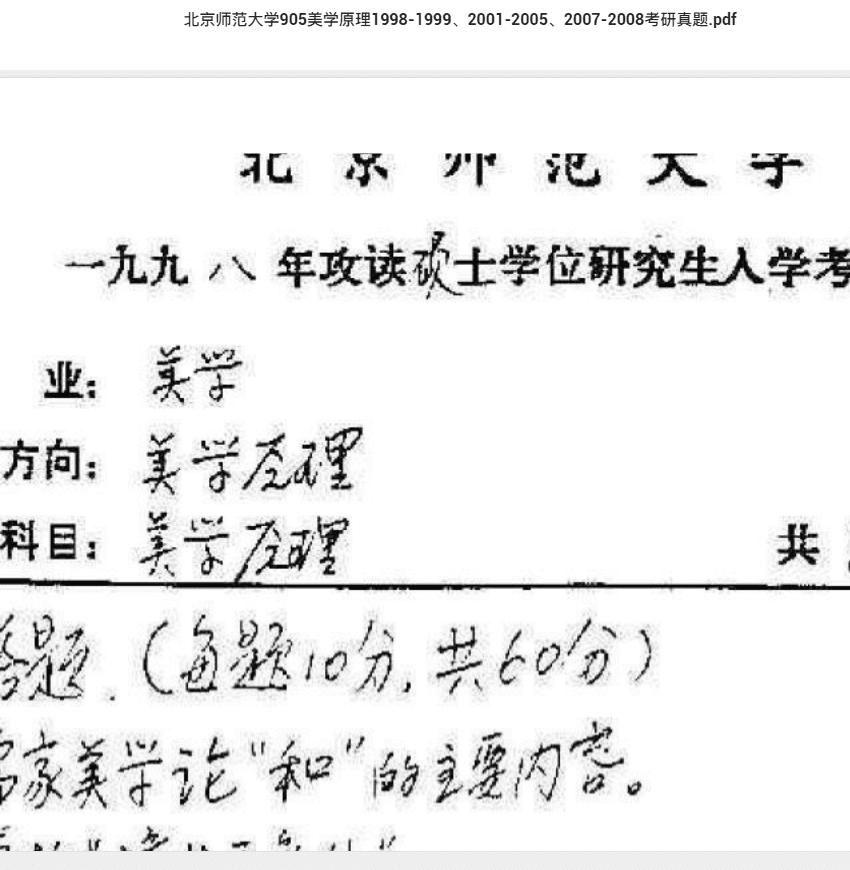 北京师范大学905美学原理1998-1999、2001-2005、2007-2008考研真题.pdf
北京师范大学
一九九八年攻读硕士学位研究生入学考
业：美学
方向：美学原理
科目：美学原理 共
答题．（每题10分，共60分）
儒家美学论“和”的主要内容。